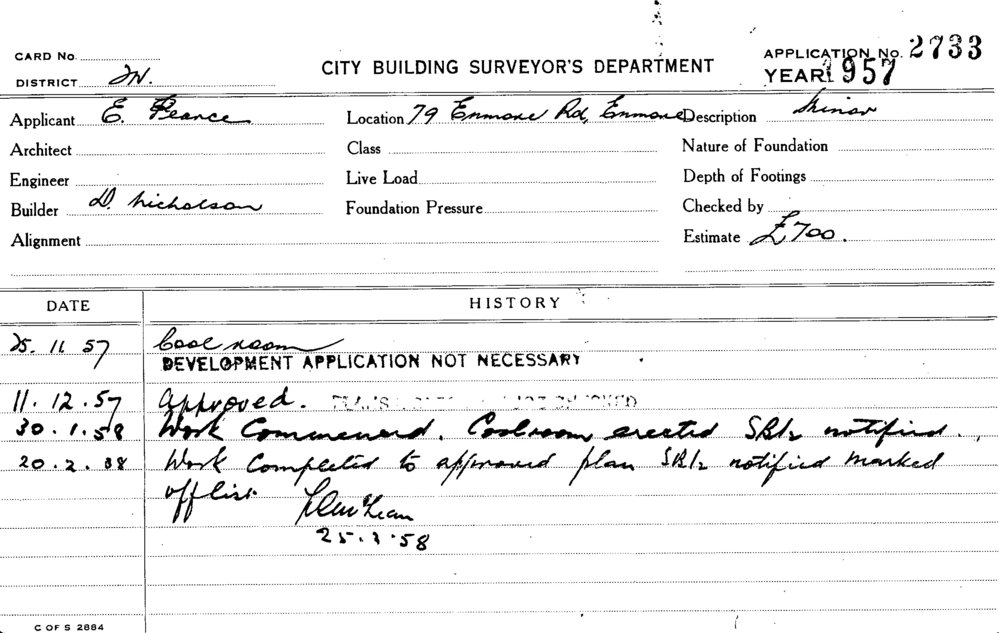 CARD No.
DISTRICT N.
CITY BUILDING SURVEYOR'S DEPARTMENT
APPLICATION No. 2733
YEAR 1957
Applicant E. Pearce
Location 79 Enmore Rd, Enmore
Description Minor
Architect
Class
Nature of Foundation
Engineer
Live Load
Depth of Footings
Builder D. Nicholson
Foundation Pressure
Checked by
Alignment
Estimate £700.
DATE
HISTORY
25. 11 57 Cool room
DEVELOPMENT APPLICATION NOT NECESSARY
11. 12. 57 Approved.
30. 1. 58 Work Commenced. Coolroom erected notified.
20. 2. 58 Work Completed to approved plan notified marked
off list.
58
C OF S 2884